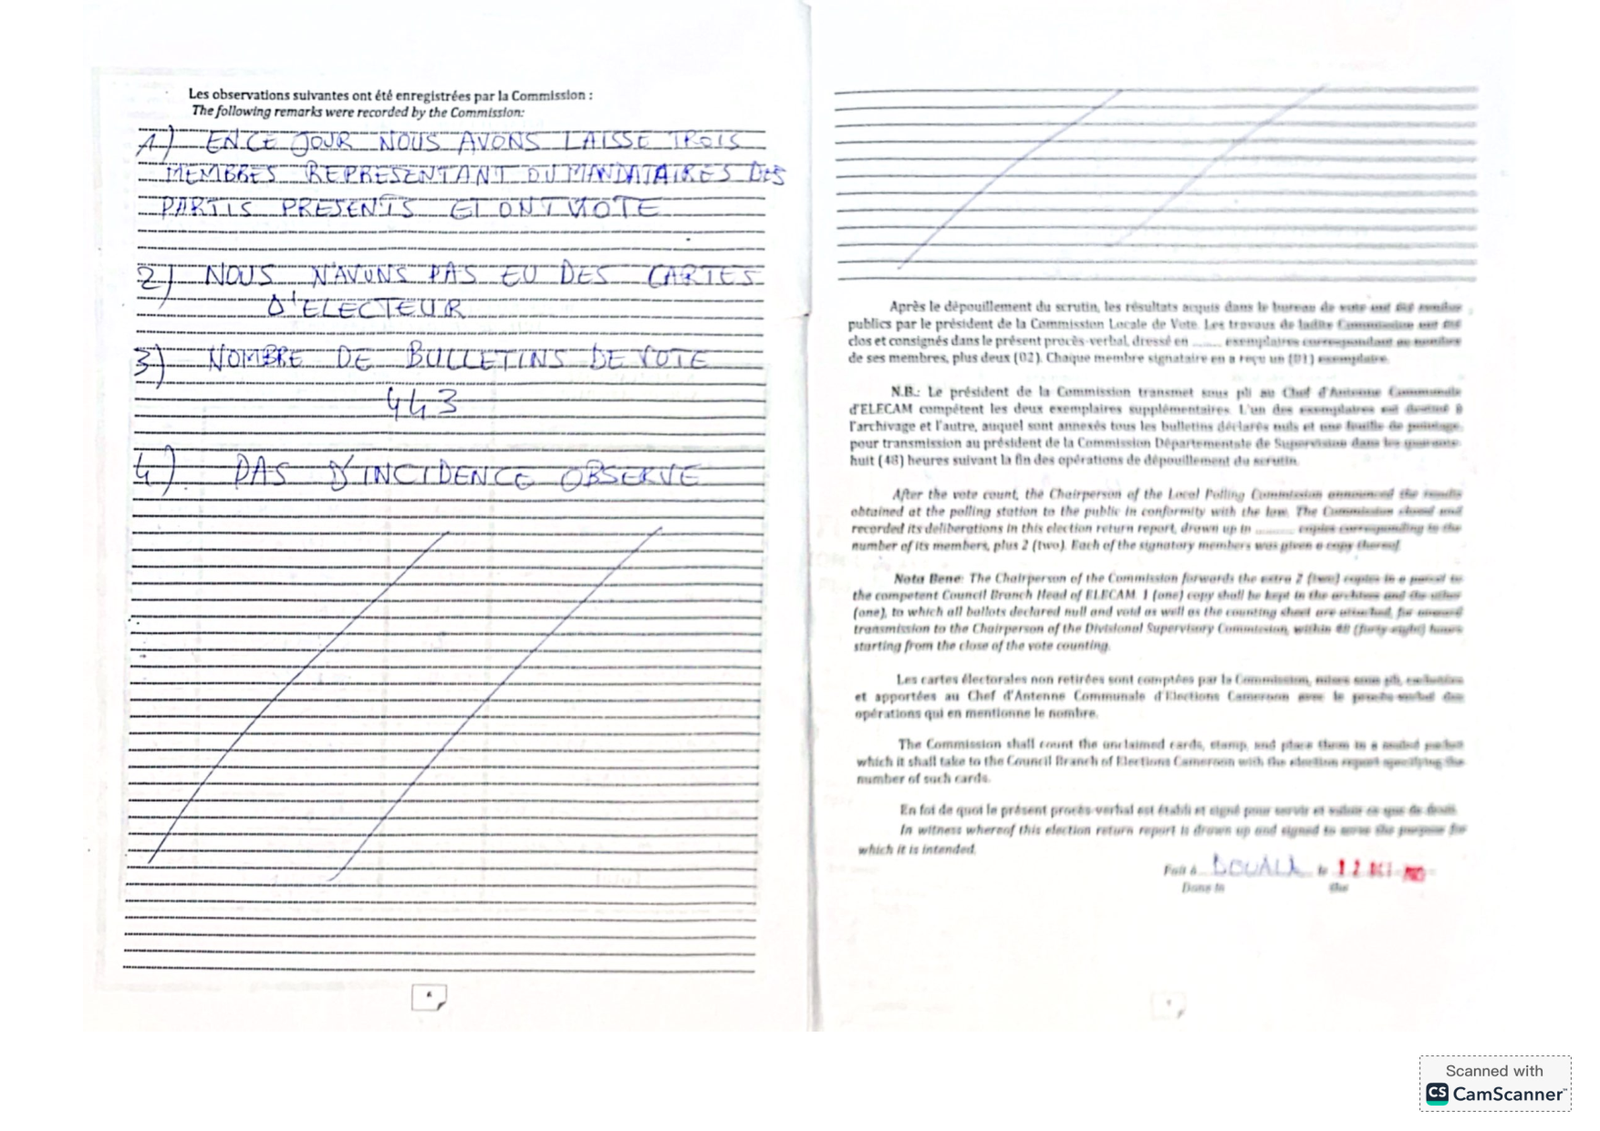 Les observations suivantes ont été enregistrées par la Commission :
The following remarks were recorded by the Commission:
1) EN CE JOUR NOUS AVONS LAISSE TROIS
MEMBRES REPRESENTANT DU MANDATAIRES DES
PARTIS PRESENTS ET ONT VOTE
2) NOUS N'AVONS PAS EU DES CARTES
D'ELECTEUR
3) NOMBRE DE BULLETINS DE VOTE
443
4) PAS D'INCIDENCE OBSERVE
6
Après le dépouillement du scrutin, les résultats acquis dans le bureau de vote ont été rendus
publics par le président de la Commission Locale de Vote. Les travaux de ladite Commission ont été
clos et consignés dans le présent procès-verbal, dressé en ........ exemplaires correspondant au nombre
de ses membres, plus deux (02). Chaque membre signataire en a reçu un (01) exemplaire.
N.B.: Le président de la Commission transmet sous pli au Chef d'Antenne Communale
d'ELECAM compétent les deux exemplaires supplémentaires. L'un des exemplaires est destiné à
l'archivage et l'autre, auquel sont annexés tous les bulletins déclarés nuls et une feuille de pointage,
pour transmission au président de la Commission Départementale de Supervision dans les quarante-
huit (48) heures suivant la fin des opérations de dépouillement du scrutin.
After the vote count, the Chairperson of the Local Polling Commission announced the results
obtained at the polling station to the public in conformity with the law. The Commission closed and
recorded its deliberations in this election return report, drawn up in ........ copies corresponding to the
number of its members, plus 2 (two). Each of the signatory members was given a copy thereof.
Nota Bene: The Chairperson of the Commission forwards the extra 2 (two) copies in a parcel to
the competent Council Branch Head of ELECAM. 1 (one) copy shall be kept in the archives and the other
(one), to which all ballots declared null and void as well as the counting sheet are attached, for onward
transmission to the Chairperson of the Divisional Supervisory Commission, within 48 (forty-eight) hours
starting from the close of the vote counting.
Les cartes électorales non retirées sont comptées par la Commission, mises sous pli, cachetées
et apportées au Chef d'Antenne Communale d'Elections Cameroon avec le procès-verbal des
opérations qui en mentionne le nombre.
The Commission shall count the unclaimed cards, stamp, and place them in a sealed packet
which it shall take to the Council Branch of Elections Cameroon with the election report specifying the
number of such cards.
En foi de quoi le présent procès-verbal est établi et signé pour servir et valoir ce que de droit.
In witness whereof this election return report is drawn up and signed to serve the purpose for
which it is intended.
Fait à DOUALA le 12 OCT
Done in the
Scanned with
CS CamScanner